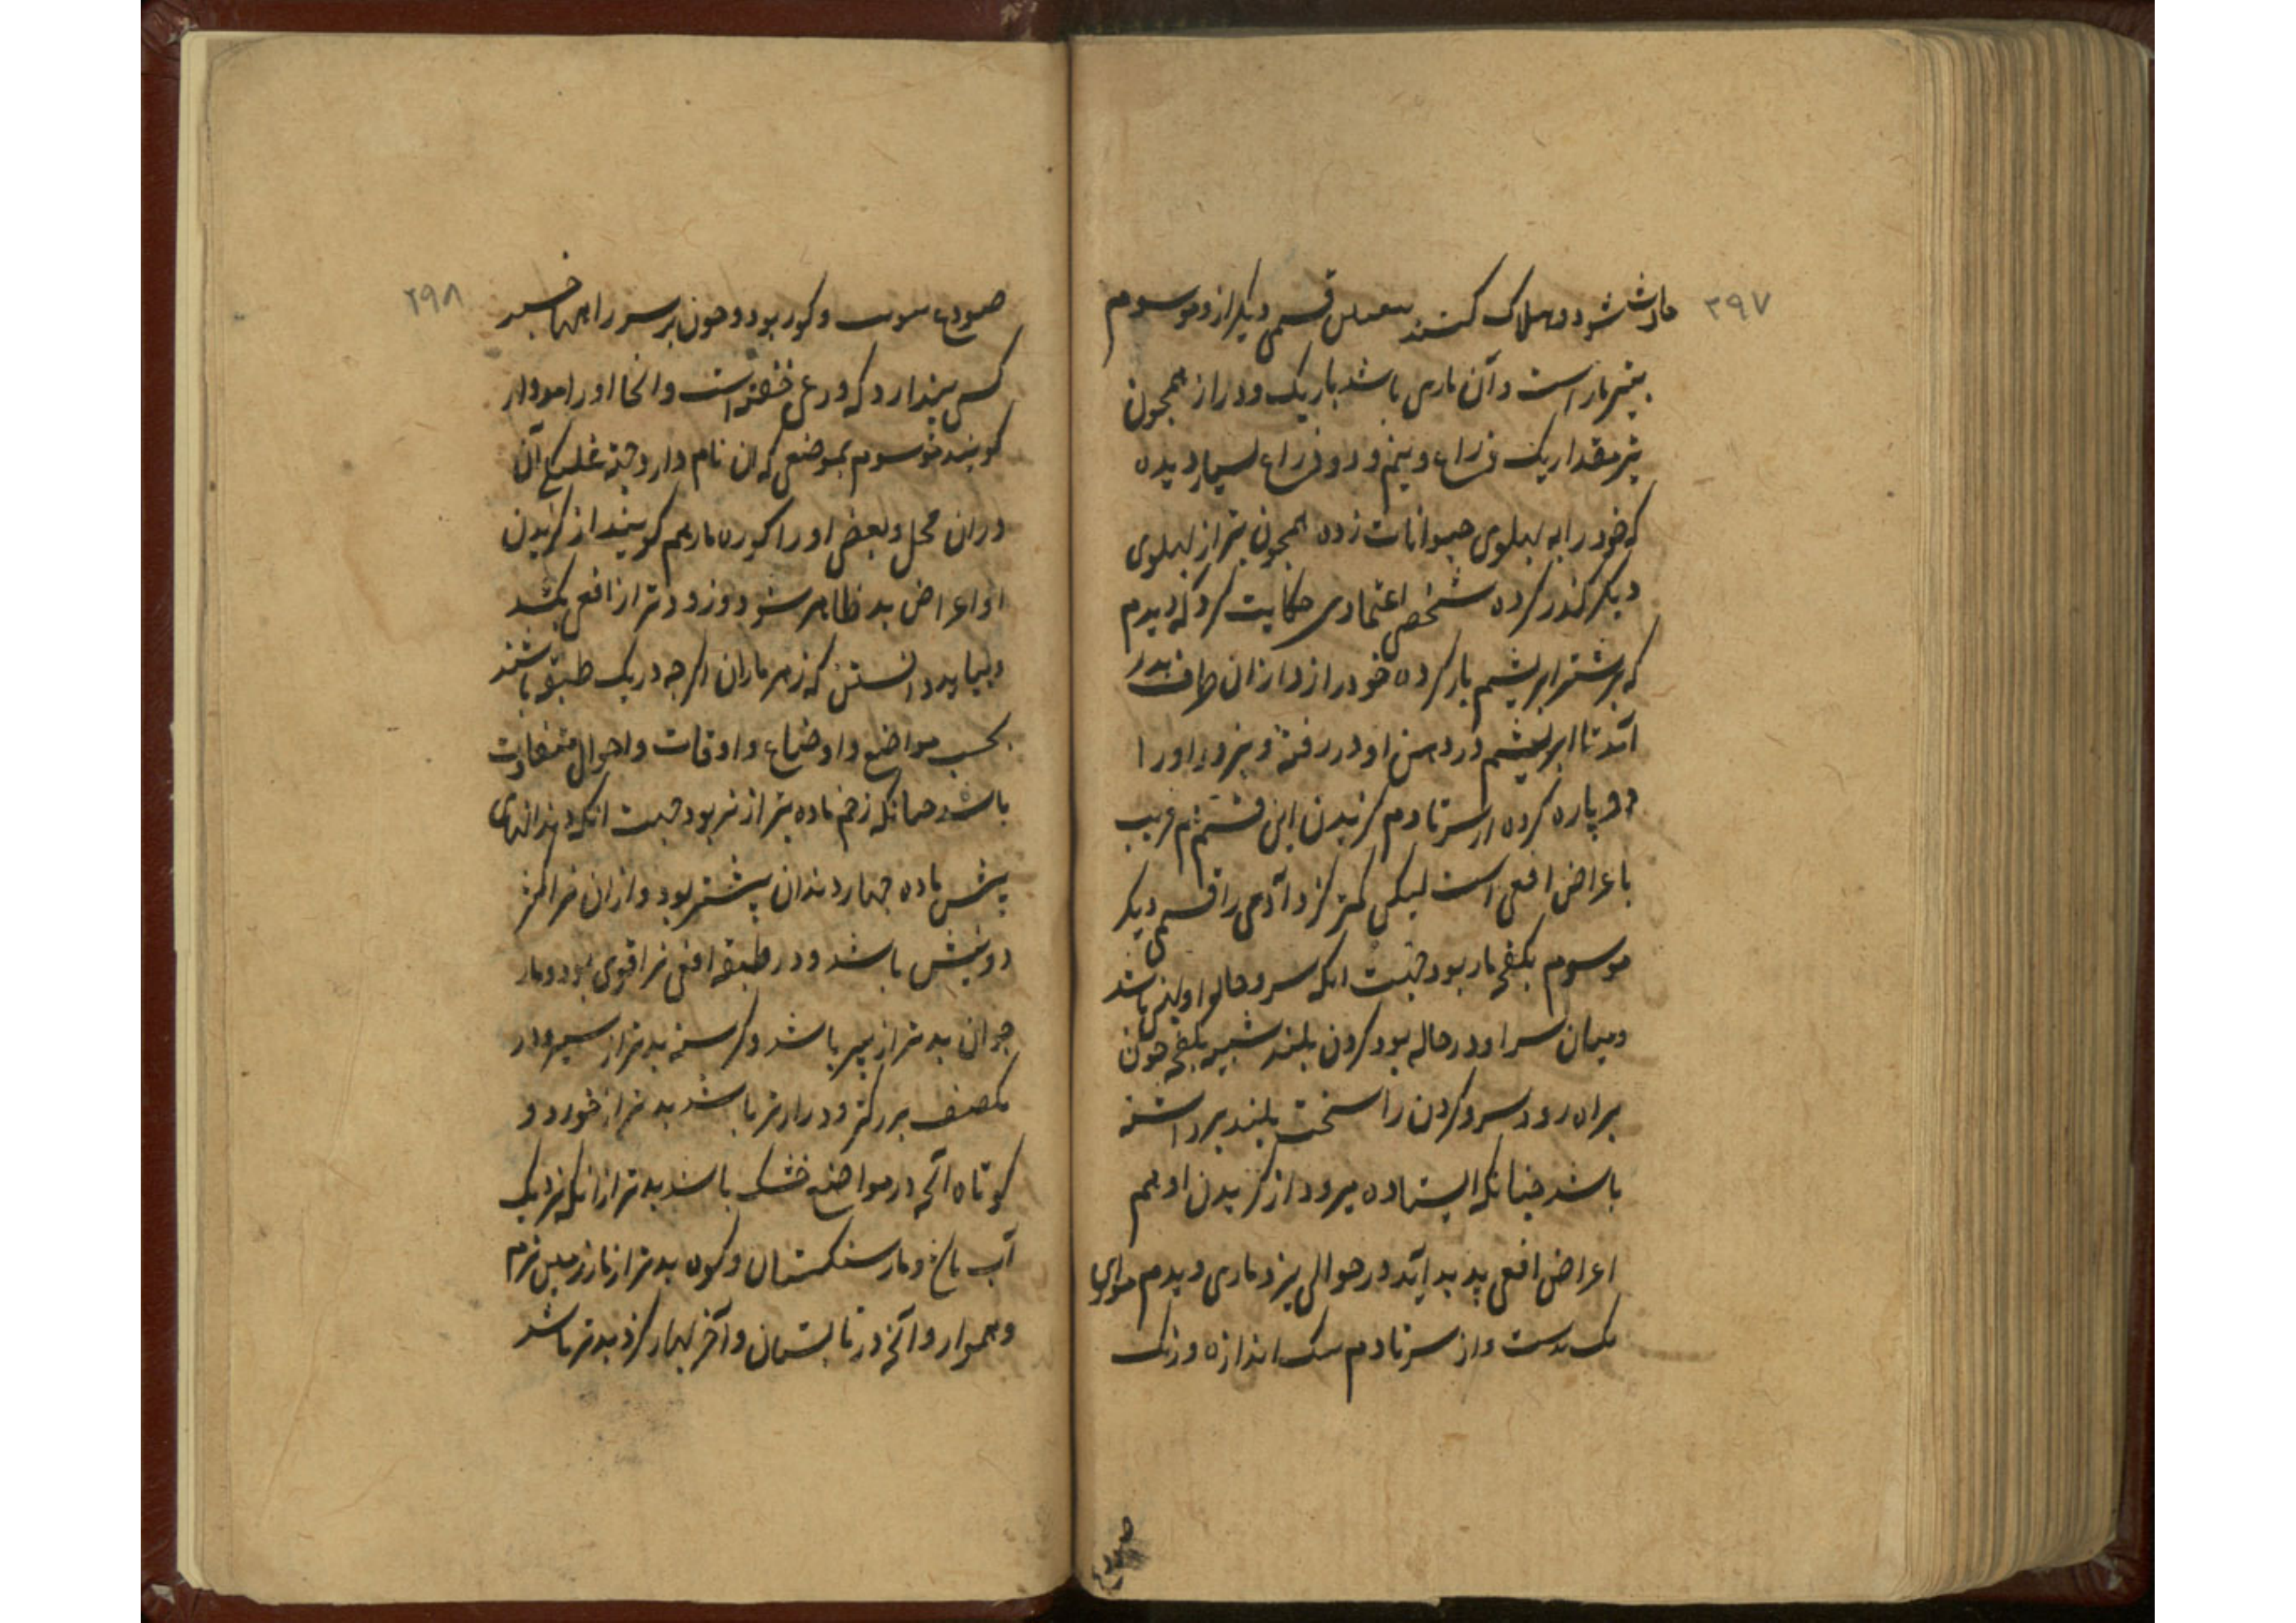 ۳۹۷
حادث شود و هلاک کنند قسمی دیگر ازو موسوم
بتیر مار است و آن ماری باشد باریک و دراز همچون
تیر مقدار یک ذراع و نیم و دو ذراع بسیار دیده
که خود را به پهلوی حیوانات زده همچون تیر از پهلوی
دیگر گذر کرده شخصی اعتمادی حکایت کرد که دیدم
که بر شتر ابریشم بار کرده خود را زد از ان طرف بدر
آمد تا ابریشم در دهن او در رفته و بزور او را
دو پاره کرده از سر تا دم گزیدن این قسم هم قریب
باعراض افعی است لیکن کمتر گزد آدمی را قسمی دیگر
موسوم بکفچه مار بود جهت انکه سر و حوالی او پهن باشد
و میان سر او در حاله بود گردن بلند شبیه بکفچه چون
براه رود سر و گردن را سخت بلند برداشته
باشد چنانکه ایستاده میرود از گزیدن او هم
اعراض افعی پدید آید در حوالی یزد ماری دیدم موازی
یک بدست و از سر تا دم یک اندازه و رنگ
۲۹۸
و کور بود و چون بر سر راهها خسبد
کس پندارد که خفته است و انجا او را
گویند موسوم بموضعی که ان نام دارد جهة غلبگی آن
دران محل و بعضی او را کوره مار هم گویند از گزیدن
او اعراض بد ظاهر شود و زودتر از افعی بکشد
و بباید دانستن که زهر ماران اگرچه در یک طبقه باشند
بحسب مواضع و اوضاع و اوقات و احوال متفاوت
باشد چنانکه زخم ماده بتر از نر بود جهت انکه دندانهای
پیش ماده چهار دندان بیشتر بود و ازان نر اکثر
دو نیش باشد و در طبقه افعی نر اقوی بود و مار
جوان بدتر از پیر باشد و گرسنه بدتر از سیر و در
یکصنف بزرگتر و درازتر باشد بدتر از خورد و
کوتاه آنچه در مواضع خشک باشد بدتر از انکه نزدیک
آب باغ و مار سنگستان و کوه بدتر از مار زمین نرم
و هموار و آنچه در تابستان و آخر بهار گزد بدتر باشد